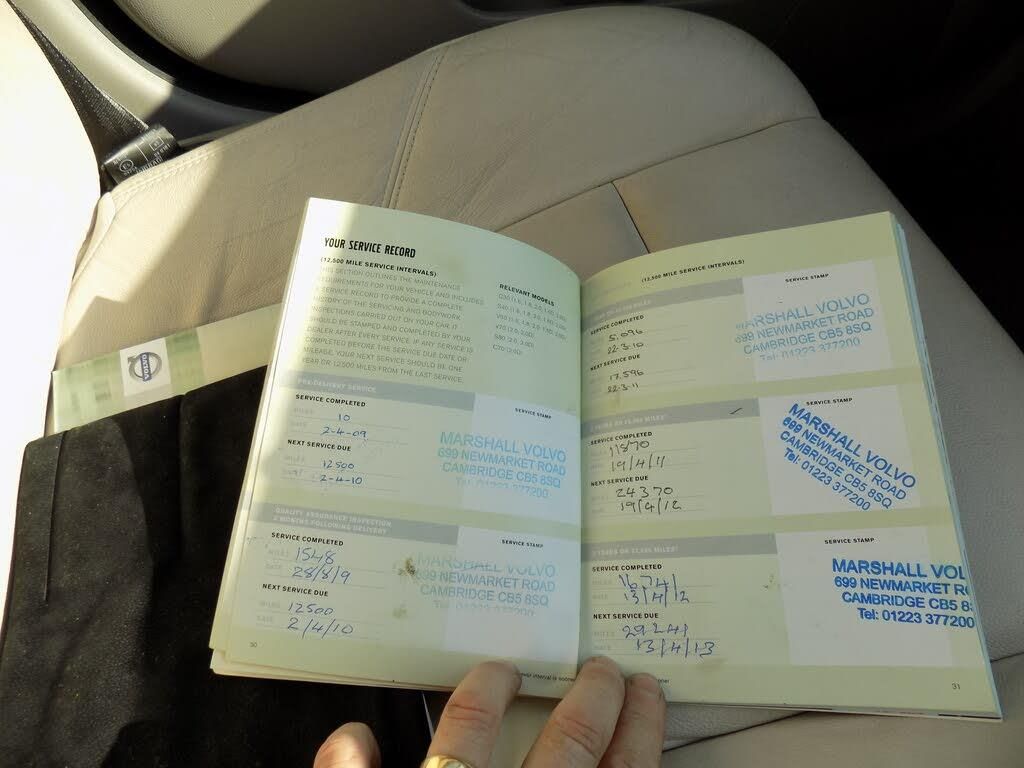 VOLVO
YOUR SERVICE RECORD
(12,500 MILE SERVICE INTERVALS)
THIS SECTION OUTLINES THE MAINTENANCE
REQUIREMENTS FOR YOUR VEHICLE AND INCLUDES
A SERVICE RECORD TO PROVIDE A COMPLETE
HISTORY OF THE SERVICING AND BODYWORK
INSPECTIONS CARRIED OUT ON YOUR CAR. IT
SHOULD BE STAMPED AND COMPLETED BY YOUR
DEALER AFTER EVERY SERVICE. IF ANY SERVICE IS
COMPLETED BEFORE THE SERVICE DUE DATE OR
MILEAGE, YOUR NEXT SERVICE SHOULD BE ONE
YEAR OR 12,500 MILES FROM THE LAST SERVICE.
RELEVANT MODELS
PRE-DELIVERY SERVICE
SERVICE COMPLETED
MILES 10
DATE 2-4-09
NEXT SERVICE DUE
MILES 12500
DATE 2-4-10
SERVICE STAMP
MARSHALL VOLVO
699 NEWMARKET ROAD
CAMBRIDGE CB5 8SQ
Tel: 01223 377200
QUALITY ASSURANCE INSPECTION
2 MONTHS FOLLOWING DELIVERY
SERVICE COMPLETED
MILES 1548
DATE 28/8/9
NEXT SERVICE DUE
MILES 12500
DATE 2/4/10
SERVICE STAMP
MARSHALL VOLVO
699 NEWMARKET ROAD
CAMBRIDGE CB5 8SQ
Tel: 01223 377200
30
(12,500 MILE SERVICE INTERVALS)
SERVICE COMPLETED
5,096
22-3-10
NEXT SERVICE DUE
17,596
22-3-11
SERVICE STAMP
MARSHALL VOLVO
699 NEWMARKET ROAD
CAMBRIDGE CB5 8SQ
Tel: 01223 377200
SERVICE COMPLETED
MILES 11870
DATE 19/4/11
NEXT SERVICE DUE
MILES 24370
DATE 19/4/12
SERVICE STAMP
MARSHALL VOLVO
699 NEWMARKET ROAD
CAMBRIDGE CB5 8SQ
Tel: 01223 377200
SERVICE COMPLETED
MILES 16741
DATE 13/4/12
NEXT SERVICE DUE
MILES 29241
DATE 13/4/13
SERVICE STAMP
MARSHALL VOL
699 NEWMARKET R
CAMBRIDGE CB5 8
Tel: 01223 377200
31